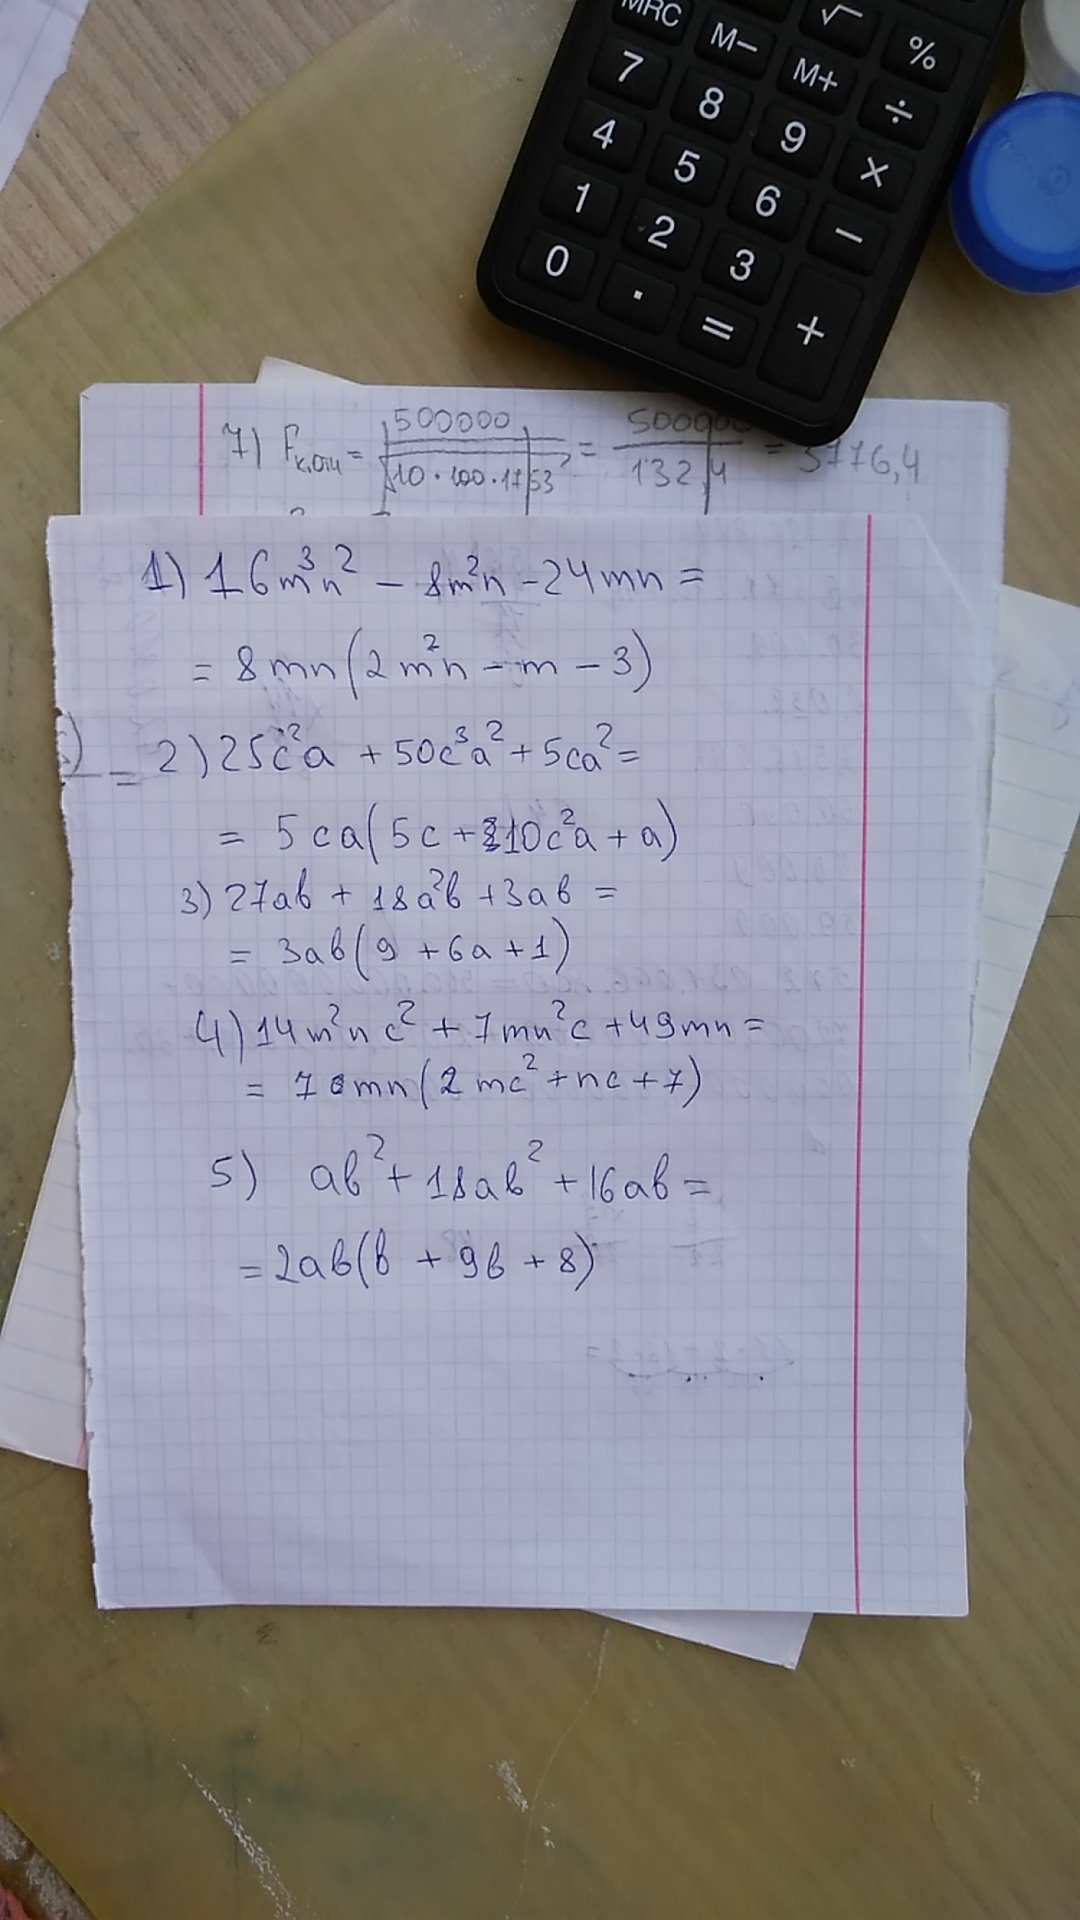 MRC M− √ %
7 8 M+ ÷
4 5 9 ×
1 2 6 −
0 . 3 +
=
7) Fк.оти = 500000 / √10·100·1753² = 500000 / 132,4 = 3776,4
1) 16m³n² − 8m²n − 24mn =
= 8mn(2m²n − m − 3)
2) 25c²a + 50c³a² + 5ca² =
= 5ca(5c + 10c²a + a)
3) 27ab + 18a²b + 3ab =
= 3ab(9 + 6a + 1)
4) 14m²nc² + 7mn²c + 49mn =
= 7mn(2mc² + nc + 7)
5) ab² + 18ab² + 16ab =
= 2ab(b + 9b + 8)